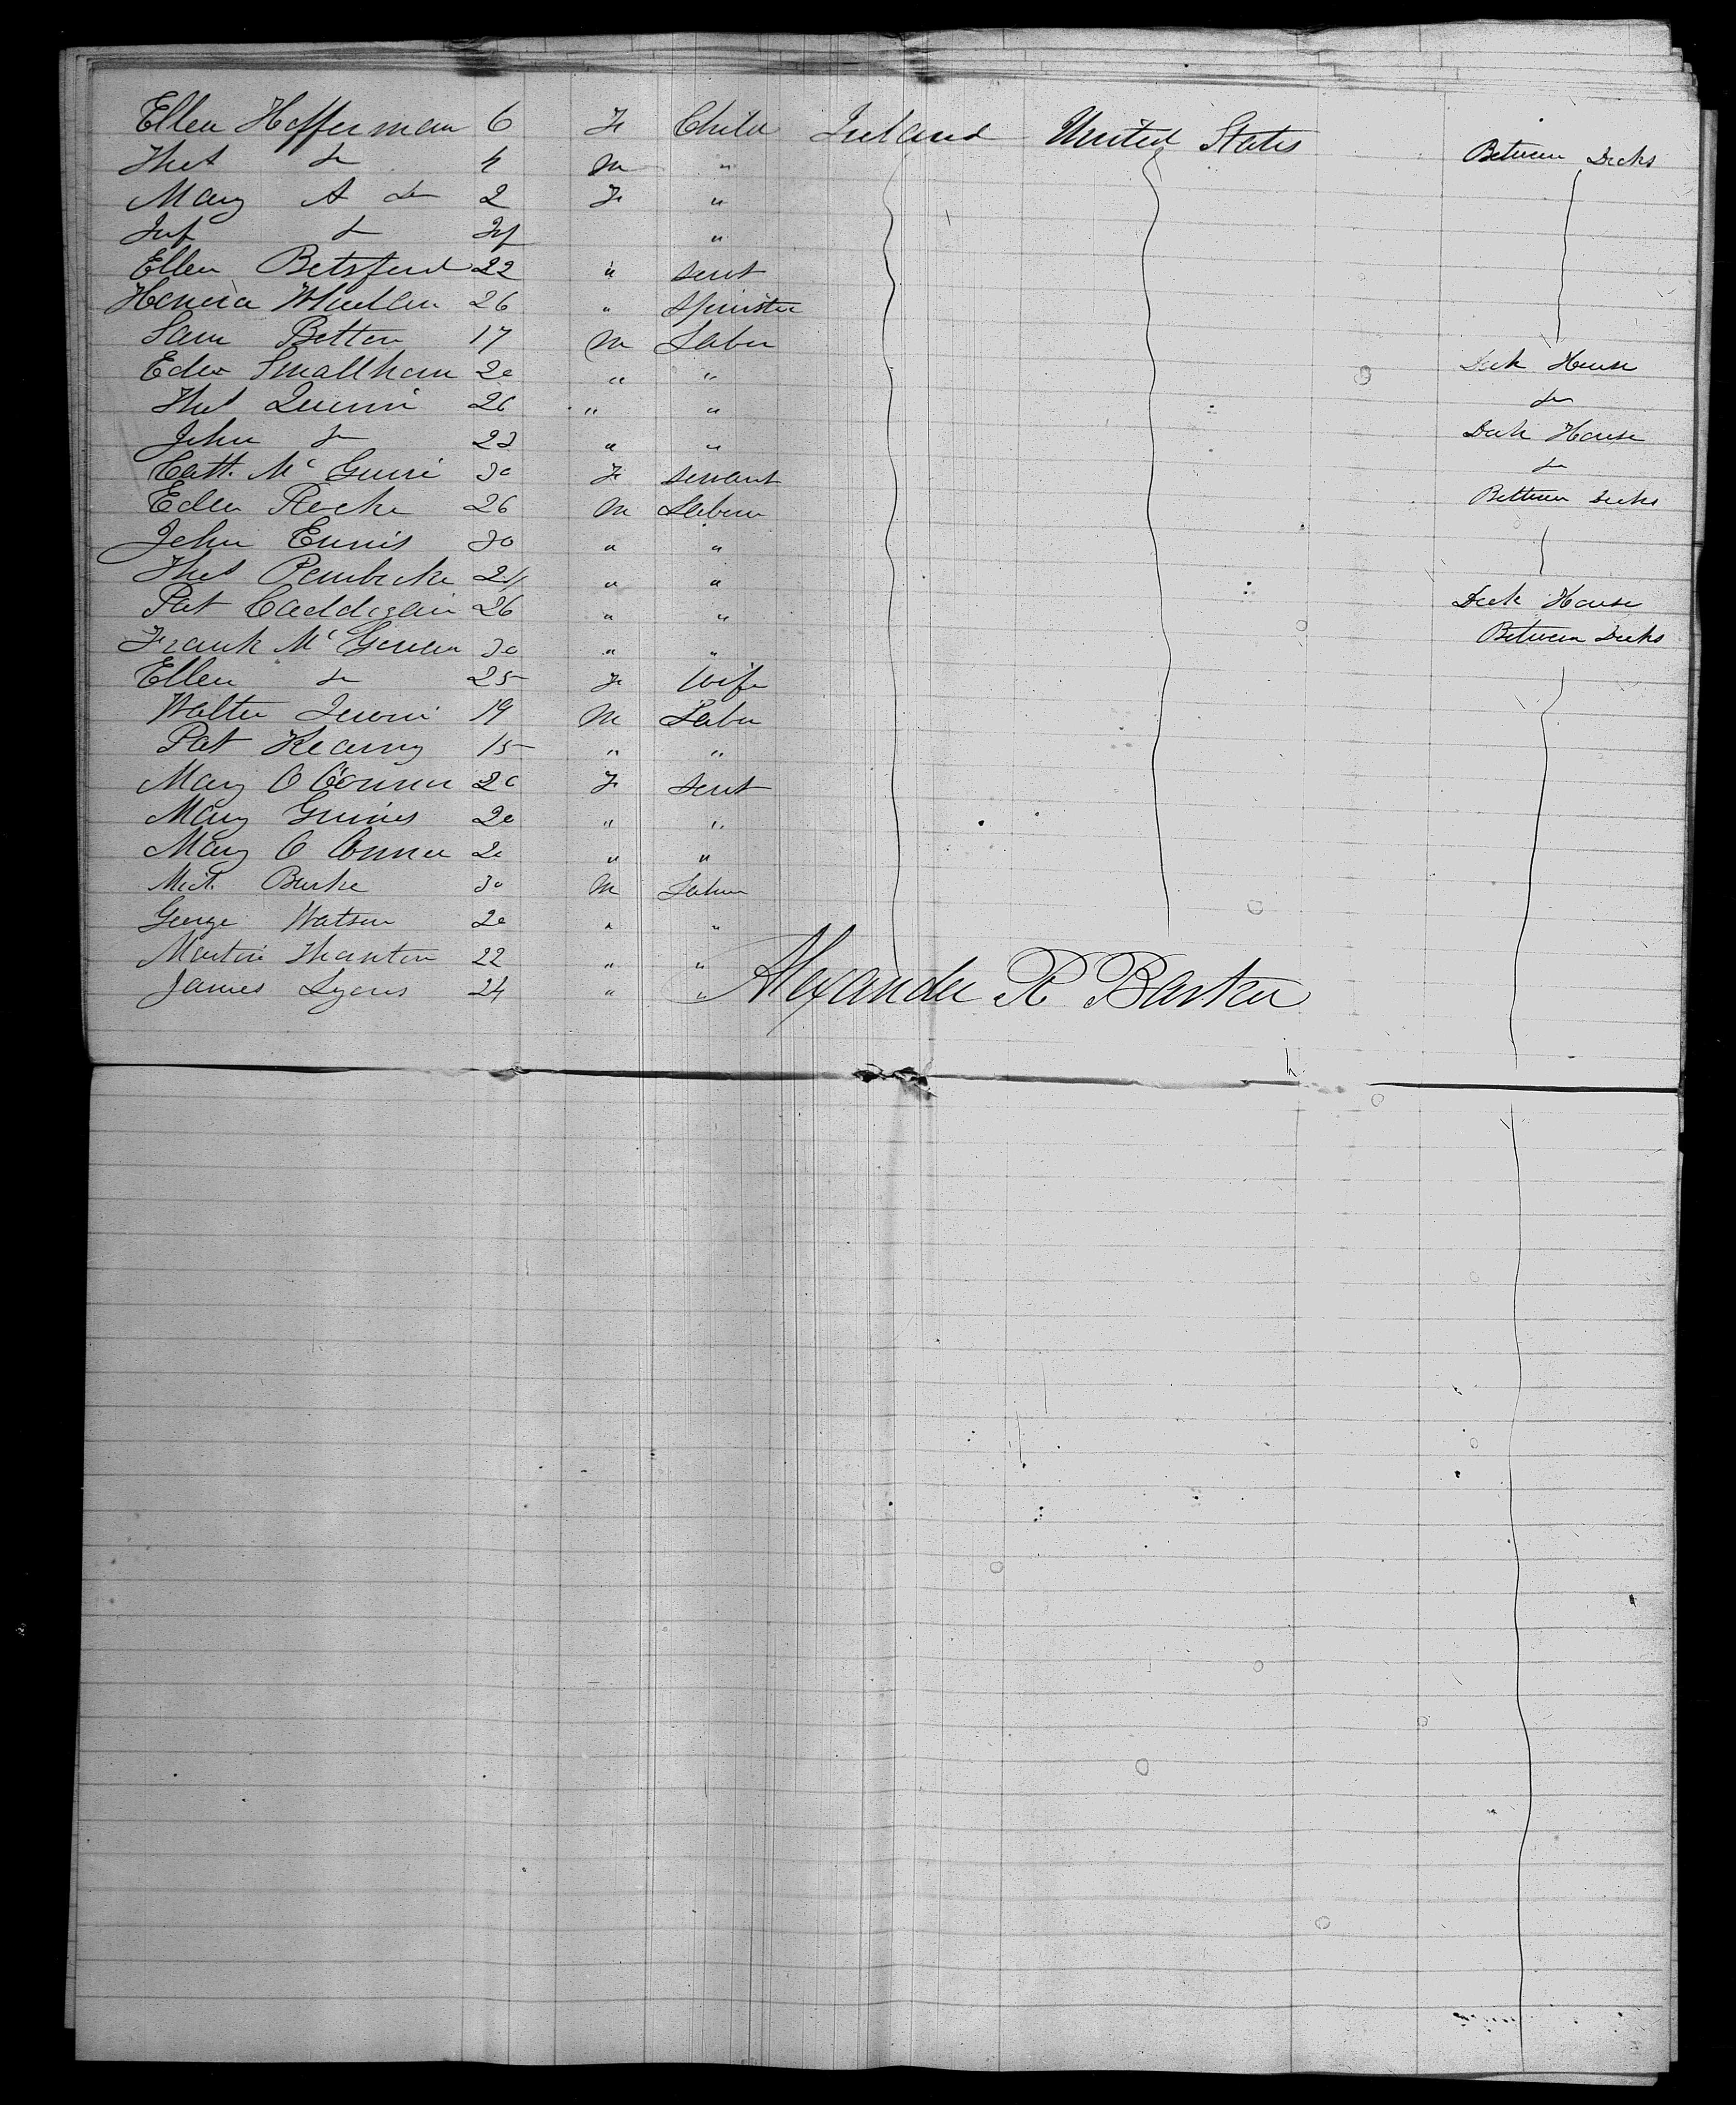 Ellen Hefferman 6 Fe Child Ireland United States Between Decks
Thos do 4 m "
Mary A do 2 Fe "
Inf do Inf "
Ellen Betsford 22 " Servt
Honora Whelan 26 " Spinster
Sam Betten 17 m Labor Deck House
Edw Smallham 20 " " do
Thos Quinn 26 " " Deck House
John do 23 " " do
Cath. Mc Guire 30 Fe servant Between Decks
Edw Roche 26 m Labour
John Ennis 30 " "
Thos Pembroke 24 " " Deck House
Pat Caddigan 26 " " Between Decks
Frank Mc Gowan 30 " "
Ellen do 25 Fe Wife
Walter 19 m Labor
Pat Kearny 15 " "
Mary O Connor 20 Fe Servt
Mary Guines 20 " "
Mary O Connor 20 " "
Mich. Burke 30 m Labour
George Watson 20 " "
Martin Thornton 22 " "
James Lyons 24 " "
Alexander R Barker